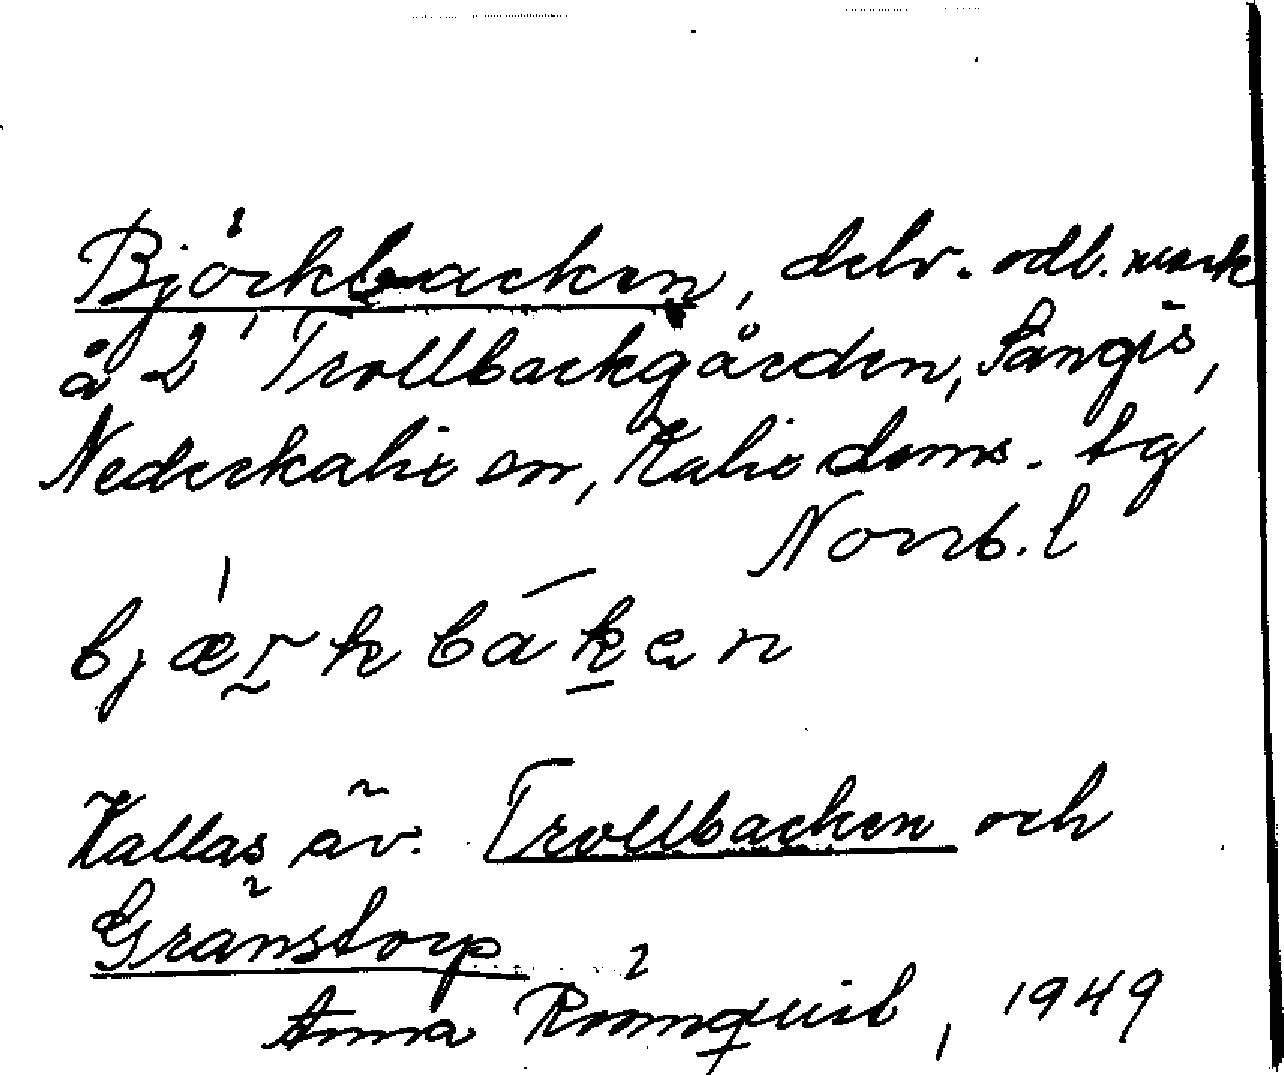 Björkbacken, delv. odl. mark
å 2¹ Trollbackgården, Sangis,
Nederkalix sn, Kalix doms. tg
Norrb. l
bjær̰kbák̠en
Kallas äv. Trollbacken och
Gränstorp
Anna Rönnquist, 1949